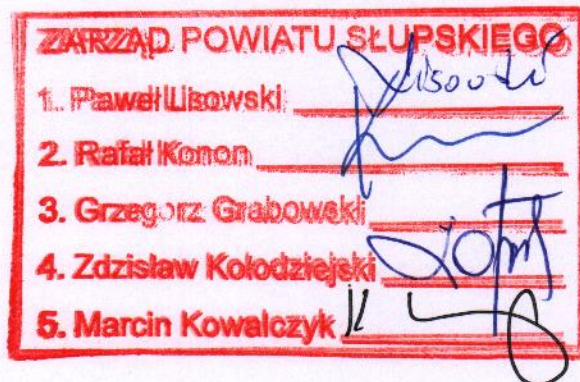 ZARZĄD POWIATU SŁUPSKIEGO
1. Paweł Lisowski Lisowski
2. Rafał Konon
3. Grzegorz Grabowski
4. Zdzisław Kołodziejski
5. Marcin Kowalczyk